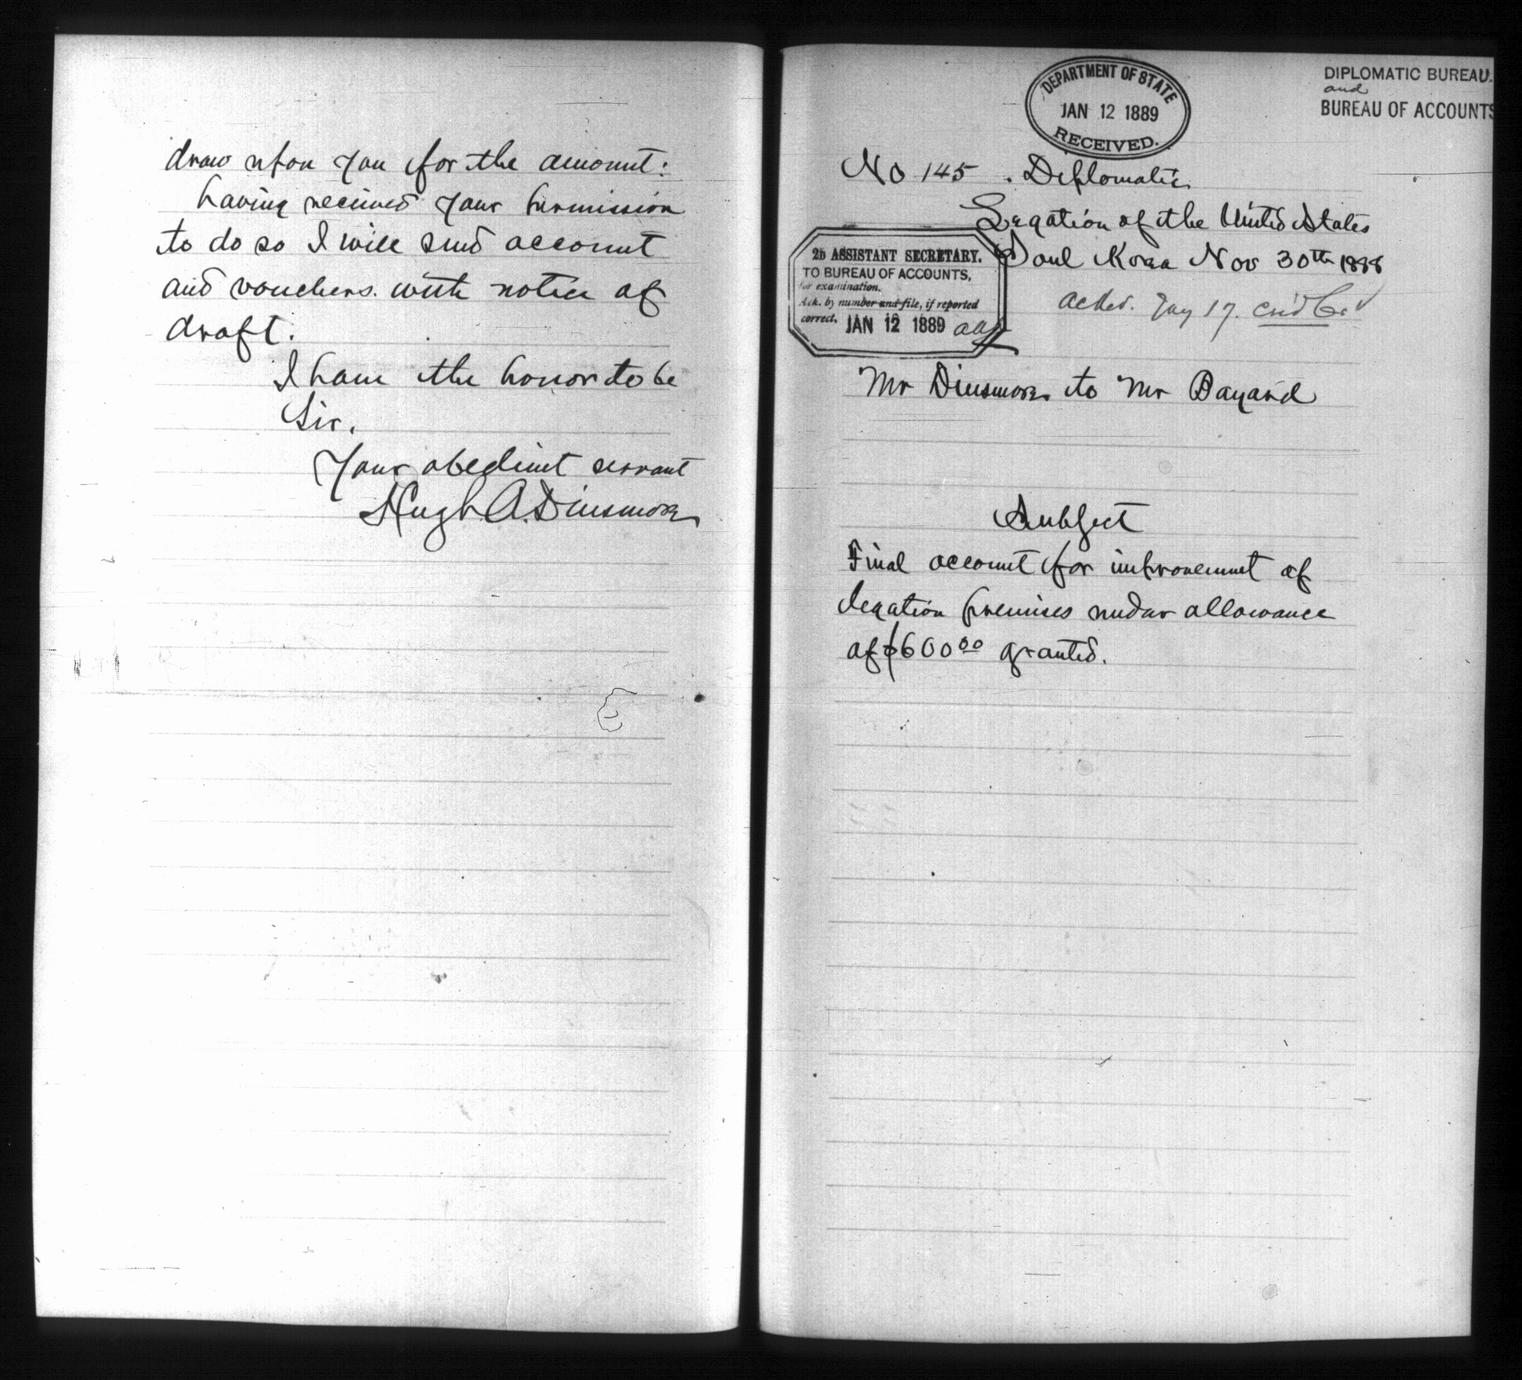 draw upon you for the amount:
having received your permission
to do so I will send account
and vouchers. with notice of
draft.
I have the honor to be
Sir,
Your obedient servant
Hugh A. Dinsmore
DEPARTMENT OF STATE
JAN 12 1889
RECEIVED.
DIPLOMATIC BUREAU.
and
BUREAU OF ACCOUNTS
No 145. Diplomatic
Legation of the United States
Soul Korea Nov 30th 1888
2D ASSISTANT SECRETARY.
TO BUREAU OF ACCOUNTS,
for examination.
Ack. by number and file, if reported
correct. JAN 12 1889
acked. 17.
Mr Dinsmore to Mr Bayard
Subject
Final account for improvement of
legation premises under allowance
of $600.00 granted.